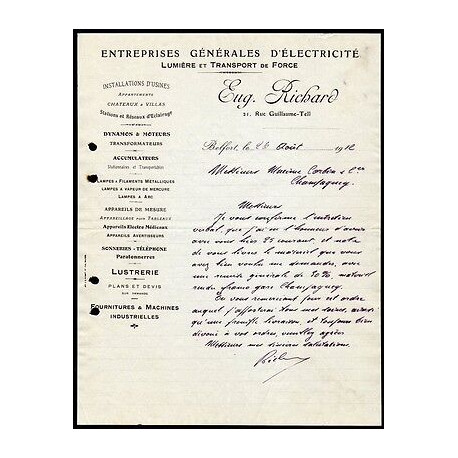 ENTREPRISES GÉNÉRALES D'ÉLECTRICITÉ
LUMIÈRE ET TRANSPORT DE FORCE
INSTALLATIONS D'USINES
APPARTEMENTS
CHATEAUX & VILLAS
Stations et Réseaux d'Eclairage
DYNAMOS & MOTEURS
TRANSFORMATEURS
ACCUMULATEURS
Stationnaires et Transportables
LAMPES A FILAMENTS MÉTALLIQUES
LAMPES A VAPEUR DE MERCURE
LAMPES A ARC
APPAREILS DE MESURE
APPAREILLAGE POUR TABLEAUX
Appareils Electro Médicaux
APPAREILS AVERTISSEURS
SONNERIES - TÉLÉPHONE
Paratonnerres
LUSTRERIE
PLANS ET DEVIS
SUR DEMANDE
FOURNITURES & MACHINES
INDUSTRIELLES
Eug. Richard
21, Rue Guillaume-Tell
Belfort, le 26 Août 1912
Messieurs Maxime Corbin & Cie
Champagney.
Messieurs
Je vous confirme l'entretien
verbal que j'ai eu l'honneur d'avoir
avec vous hier 25 courant, et note
de vous livrer le matériel que vous
avez bien voulu me demander, avec
une remise générale de % matériel
rendu franco gare Champagney.
En vous remerciant pour cet ordre
auquel j'apporterai tous mes soins, ainsi
qu'une prompte livraison, et toujours bien
dévoué à vos ordres, veuillez agréer
Messieurs mes sincères salutations.